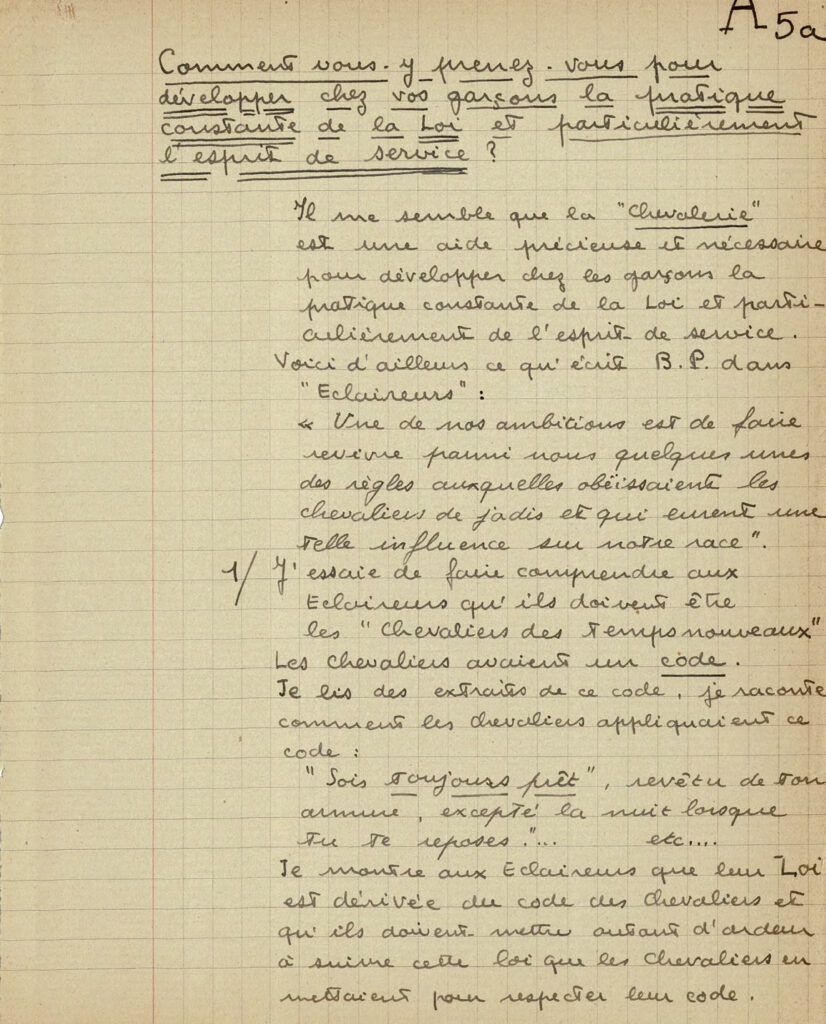 A 5a
Comment vous-y prenez-vous pour
développer chez vos garçons la pratique
constante de la Loi et particulièrement
l'esprit de service ?
Il me semble que la "Chevalerie"
est une aide précieuse et nécessaire
pour développer chez les garçons la
pratique constante de la Loi et parti-
culièrement de l'esprit de service.
Voici d'ailleurs ce qu'écrit B.P. dans
"Eclaireurs" :
« Une de nos ambitions est de faire
revivre parmi nous quelques unes
des règles auxquelles obéissaient les
chevaliers de jadis et qui eurent une
telle influence sur notre race".
1/ J'essaie de faire comprendre aux
Eclaireurs qu'ils doivent être
les "Chevaliers des Temps nouveaux"
Les Chevaliers avaient un code.
Je lis des extraits de ce code, je raconte
comment les chevaliers appliquaient ce
code :
"Sois toujours prêt", revêtu de ton
armure, excepté la nuit lorsque
tu te reposes."... etc....
Je montre aux Eclaireurs que leur Loi
est dérivée du code des Chevaliers et
qu'ils doivent mettre autant d'ardeur
à suivre cette loi que les Chevaliers en
mettaient pour respecter leur code.